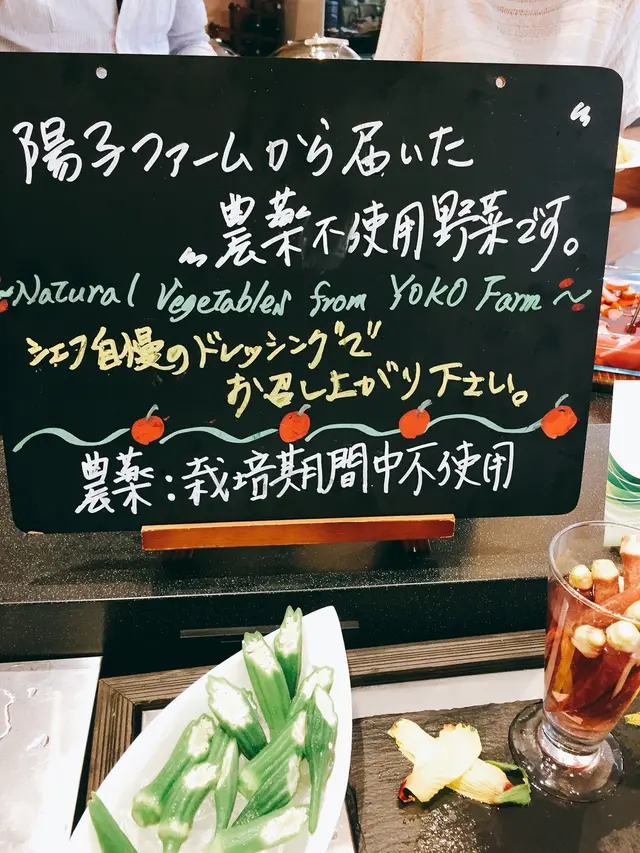 陽子ファームから届いた
農薬不使用野菜です。
~Natural Vegetables from YOKO Farm~
シェフ自慢のドレッシングで
お召し上がり下さい。
農薬:栽培期間中不使用